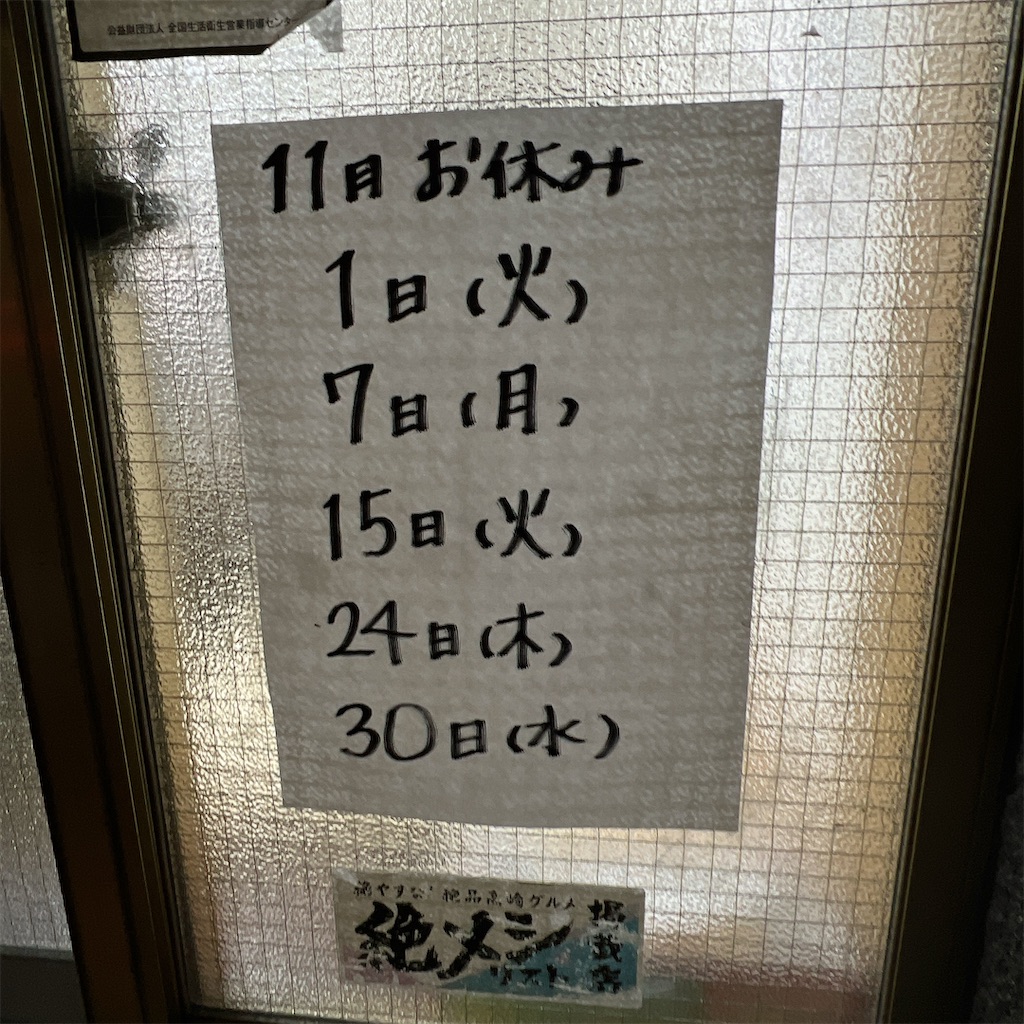 公益財団法人 全国生活衛生営業指導センター
11月 お休み
1日(火)
7日(月)
15日(火)
24日(木)
30日(水)
絶やすな! 絶品高崎グルメ
絶メシ
リスト
掲載店